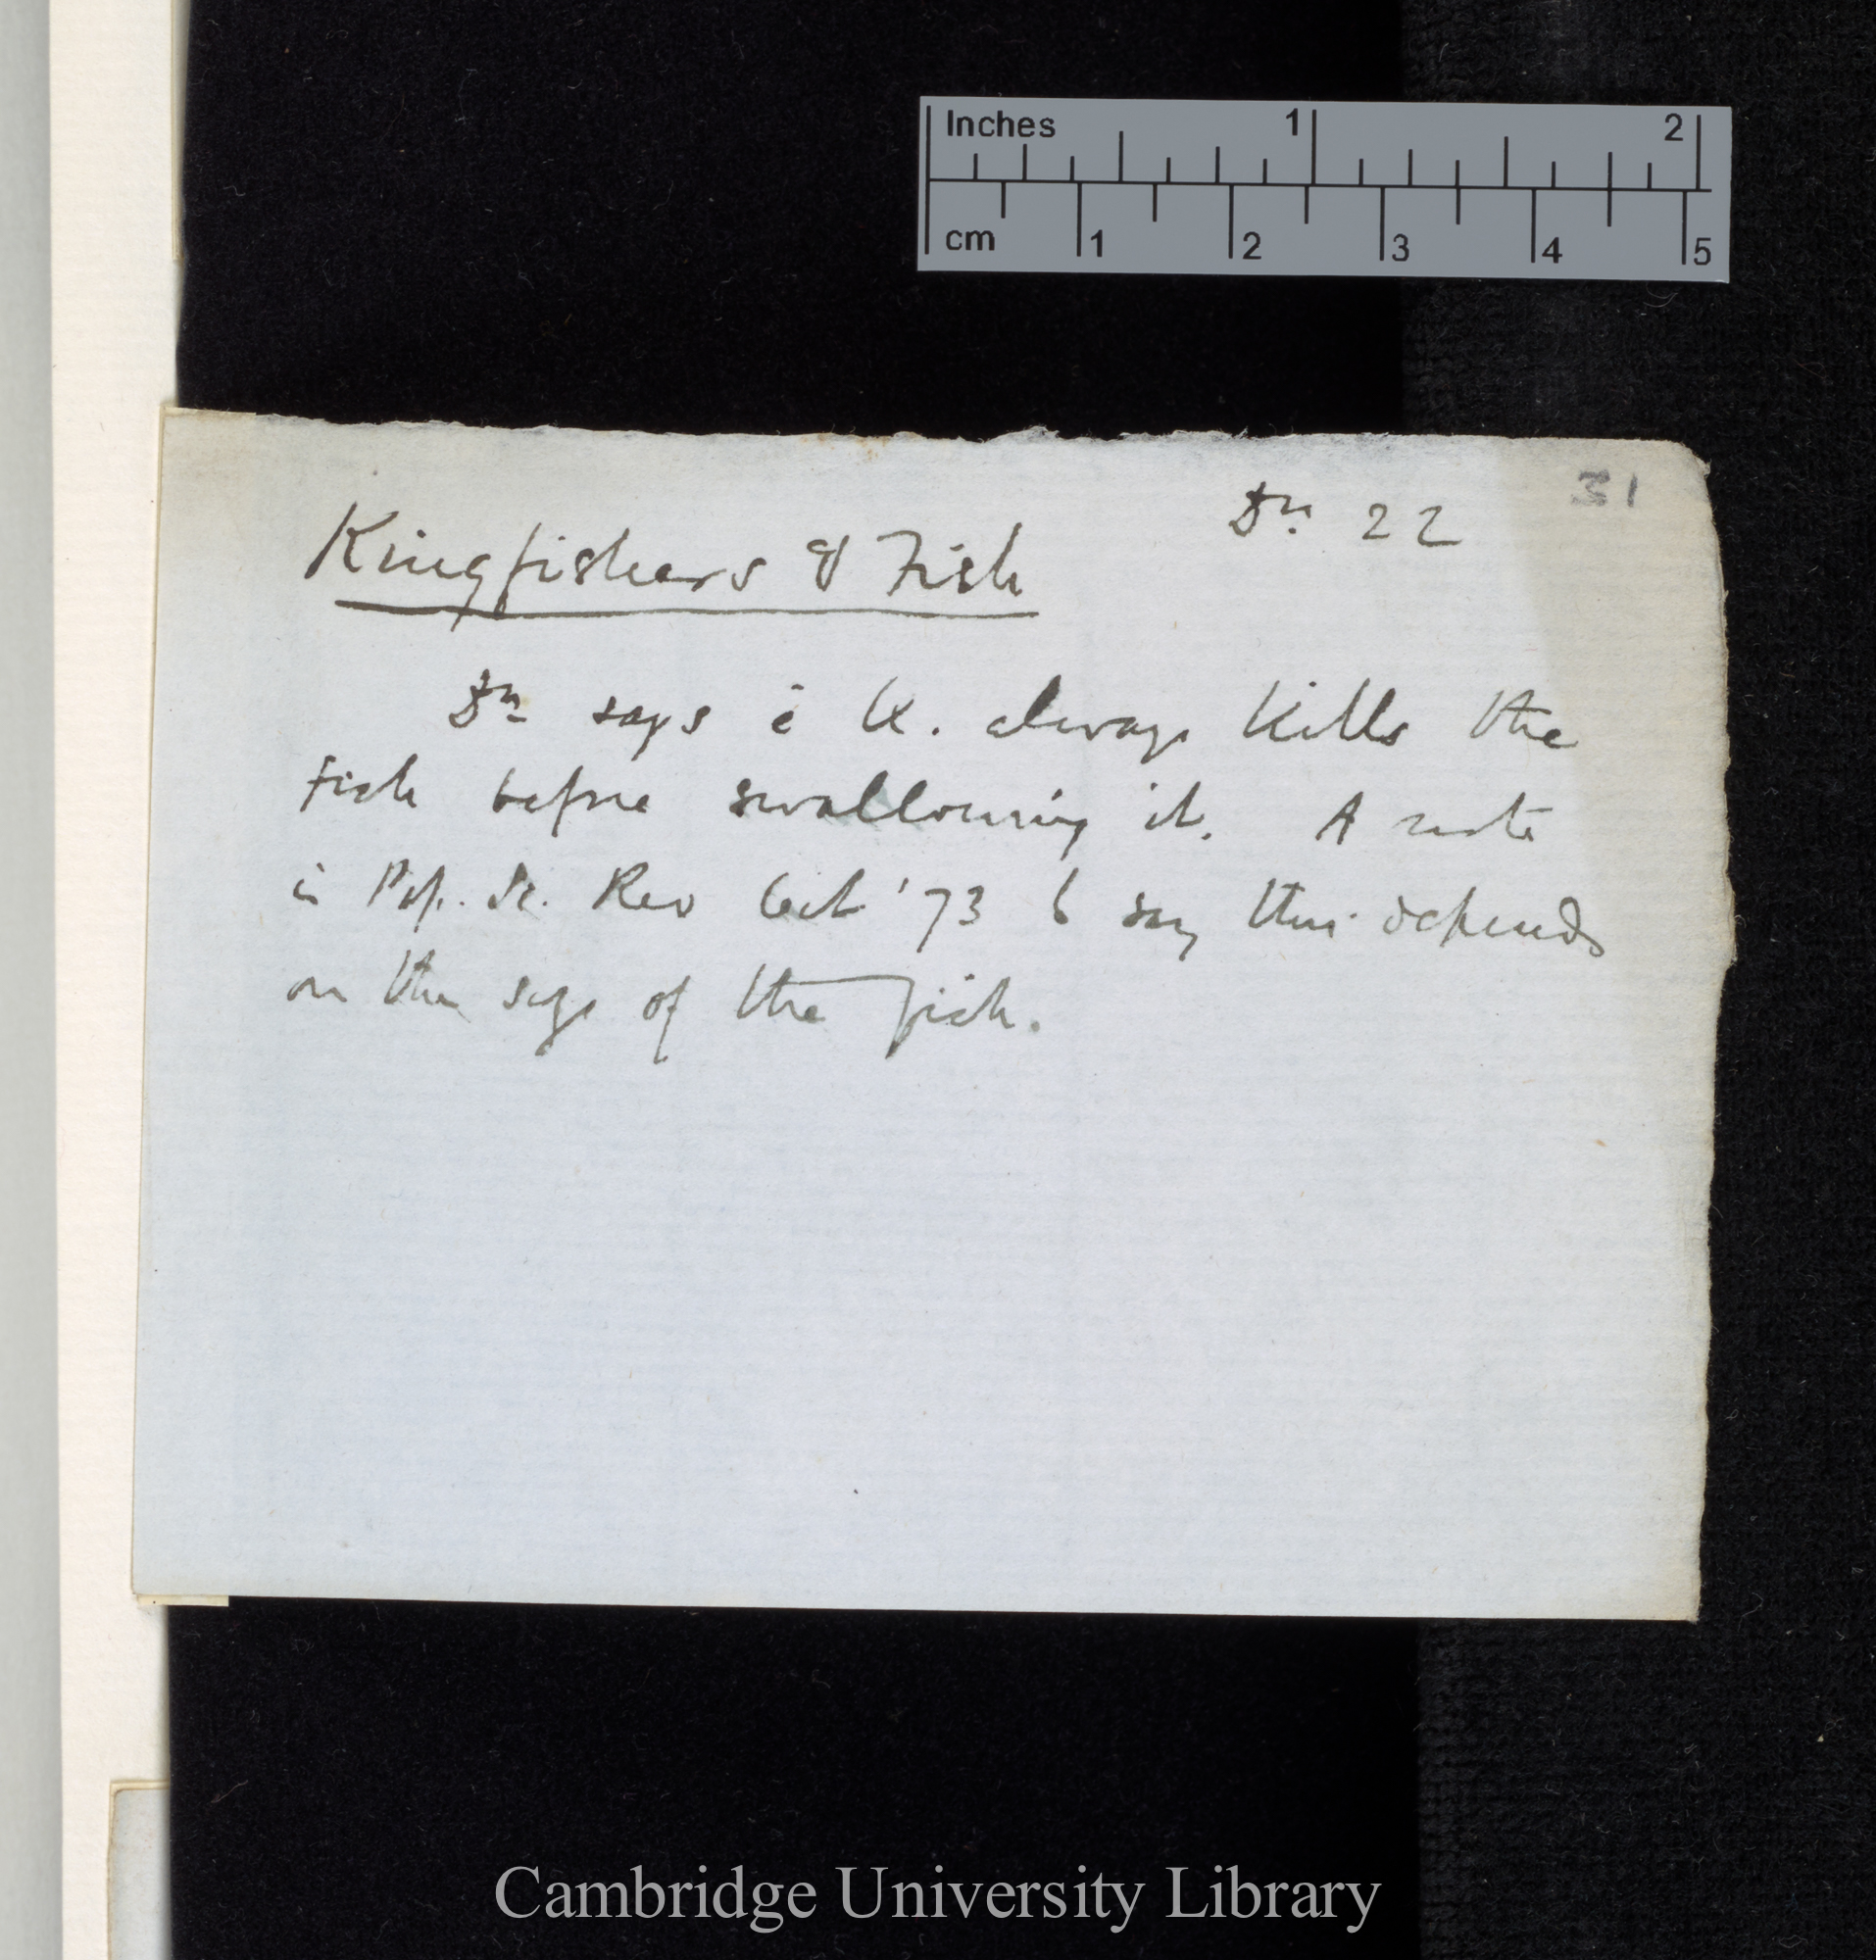 Inches 1 2
cm 1 2 3 4 5
31
Dn. 22
Kingfishers & Fish
Dn says ė K. always kills the
fish before swallowing it. A note
in Pop. Sc. Rev Oct '73 say this depends
on the size of the fish.
Cambridge University Library